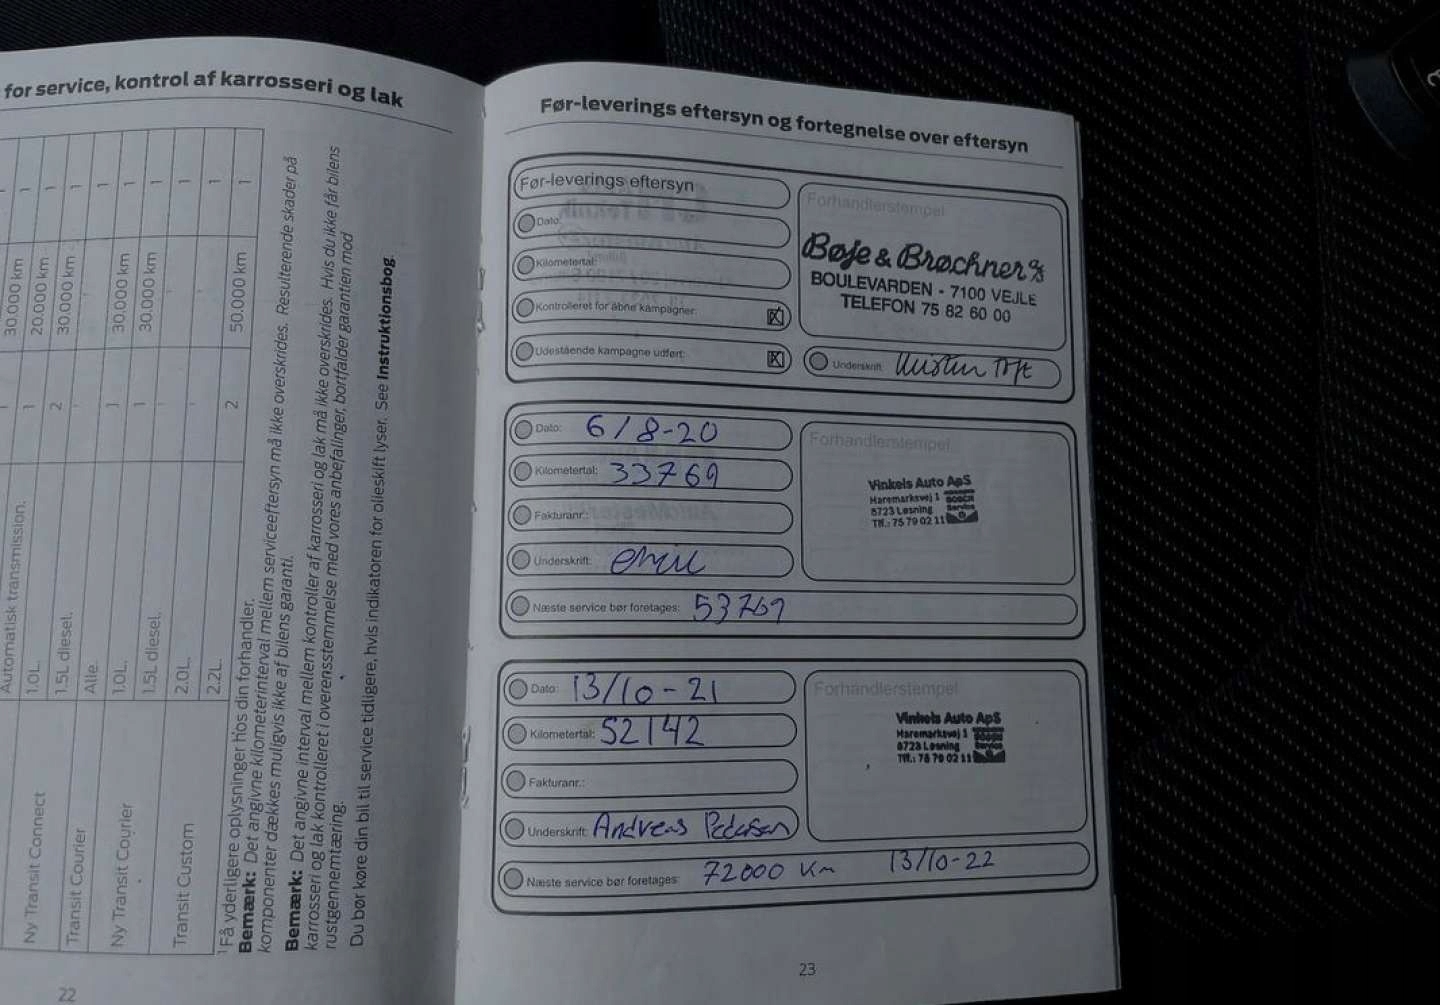 for service, kontrol af karrosseri og lak
1 1 1 1 1 1 1 1 1 1
30.000 km
20.000 km
30.000 km
30.000 km
30.000 km
50.000 km
1
1
2
1
1
2
Automatisk transmission.
1.0L.
1.5L diesel.
Alle.
1.0L.
1.5L diesel.
2.0L.
2.2L.
Ny Transit Connect
Transit Courier
Ny Transit Courier
Transit Custom
1 Få yderligere oplysninger hos din forhandler.
Bemærk: Det angivne kilometerinterval mellem serviceeftersyn må ikke overskrides. Resulterende skader på
komponenter dækkes muligvis ikke af bilens garanti.
Bemærk: Det angivne interval mellem kontroller af karrosseri og lak må ikke overskrides. Hvis du ikke får bilens
karrosseri og lak kontrolleret i overensstemmelse med vores anbefalinger, bortfalder garantien mod
rustgennemtæring.
Du bør køre din bil til service tidligere, hvis indikatoren for olieskift lyser. See Instruktionsbog.
22
Før-leverings eftersyn og fortegnelse over eftersyn
Før-leverings eftersyn
Dato:
Kilometertal:
Kontrolleret for åbne kampagner: X
Udestående kampagne udført: X
Forhandlerstempel
Bøje & Brøchner A/S
BOULEVARDEN - 7100 VEJLE
TELEFON 75 82 60 00
Underskrift:
Dato: 6/8-20
Kilometertal: 33769
Fakturanr.:
Underskrift: emil
Næste service bør foretages: 53769
Forhandlerstempel
Vinkels Auto ApS
Haremarksvej 1
8723 Løsning
Tlf.: 75 79 02 11
BOSCH
Service
Dato: 13/10-21
Kilometertal: 52142
Fakturanr.:
Underskrift: Andreas Pedersen
Næste service bør foretages: 72000 Km 13/10-22
Forhandlerstempel
Vinkels Auto ApS
Haremarksvej 1
8723 Løsning
Tlf.: 75 79 02 11
Service
23